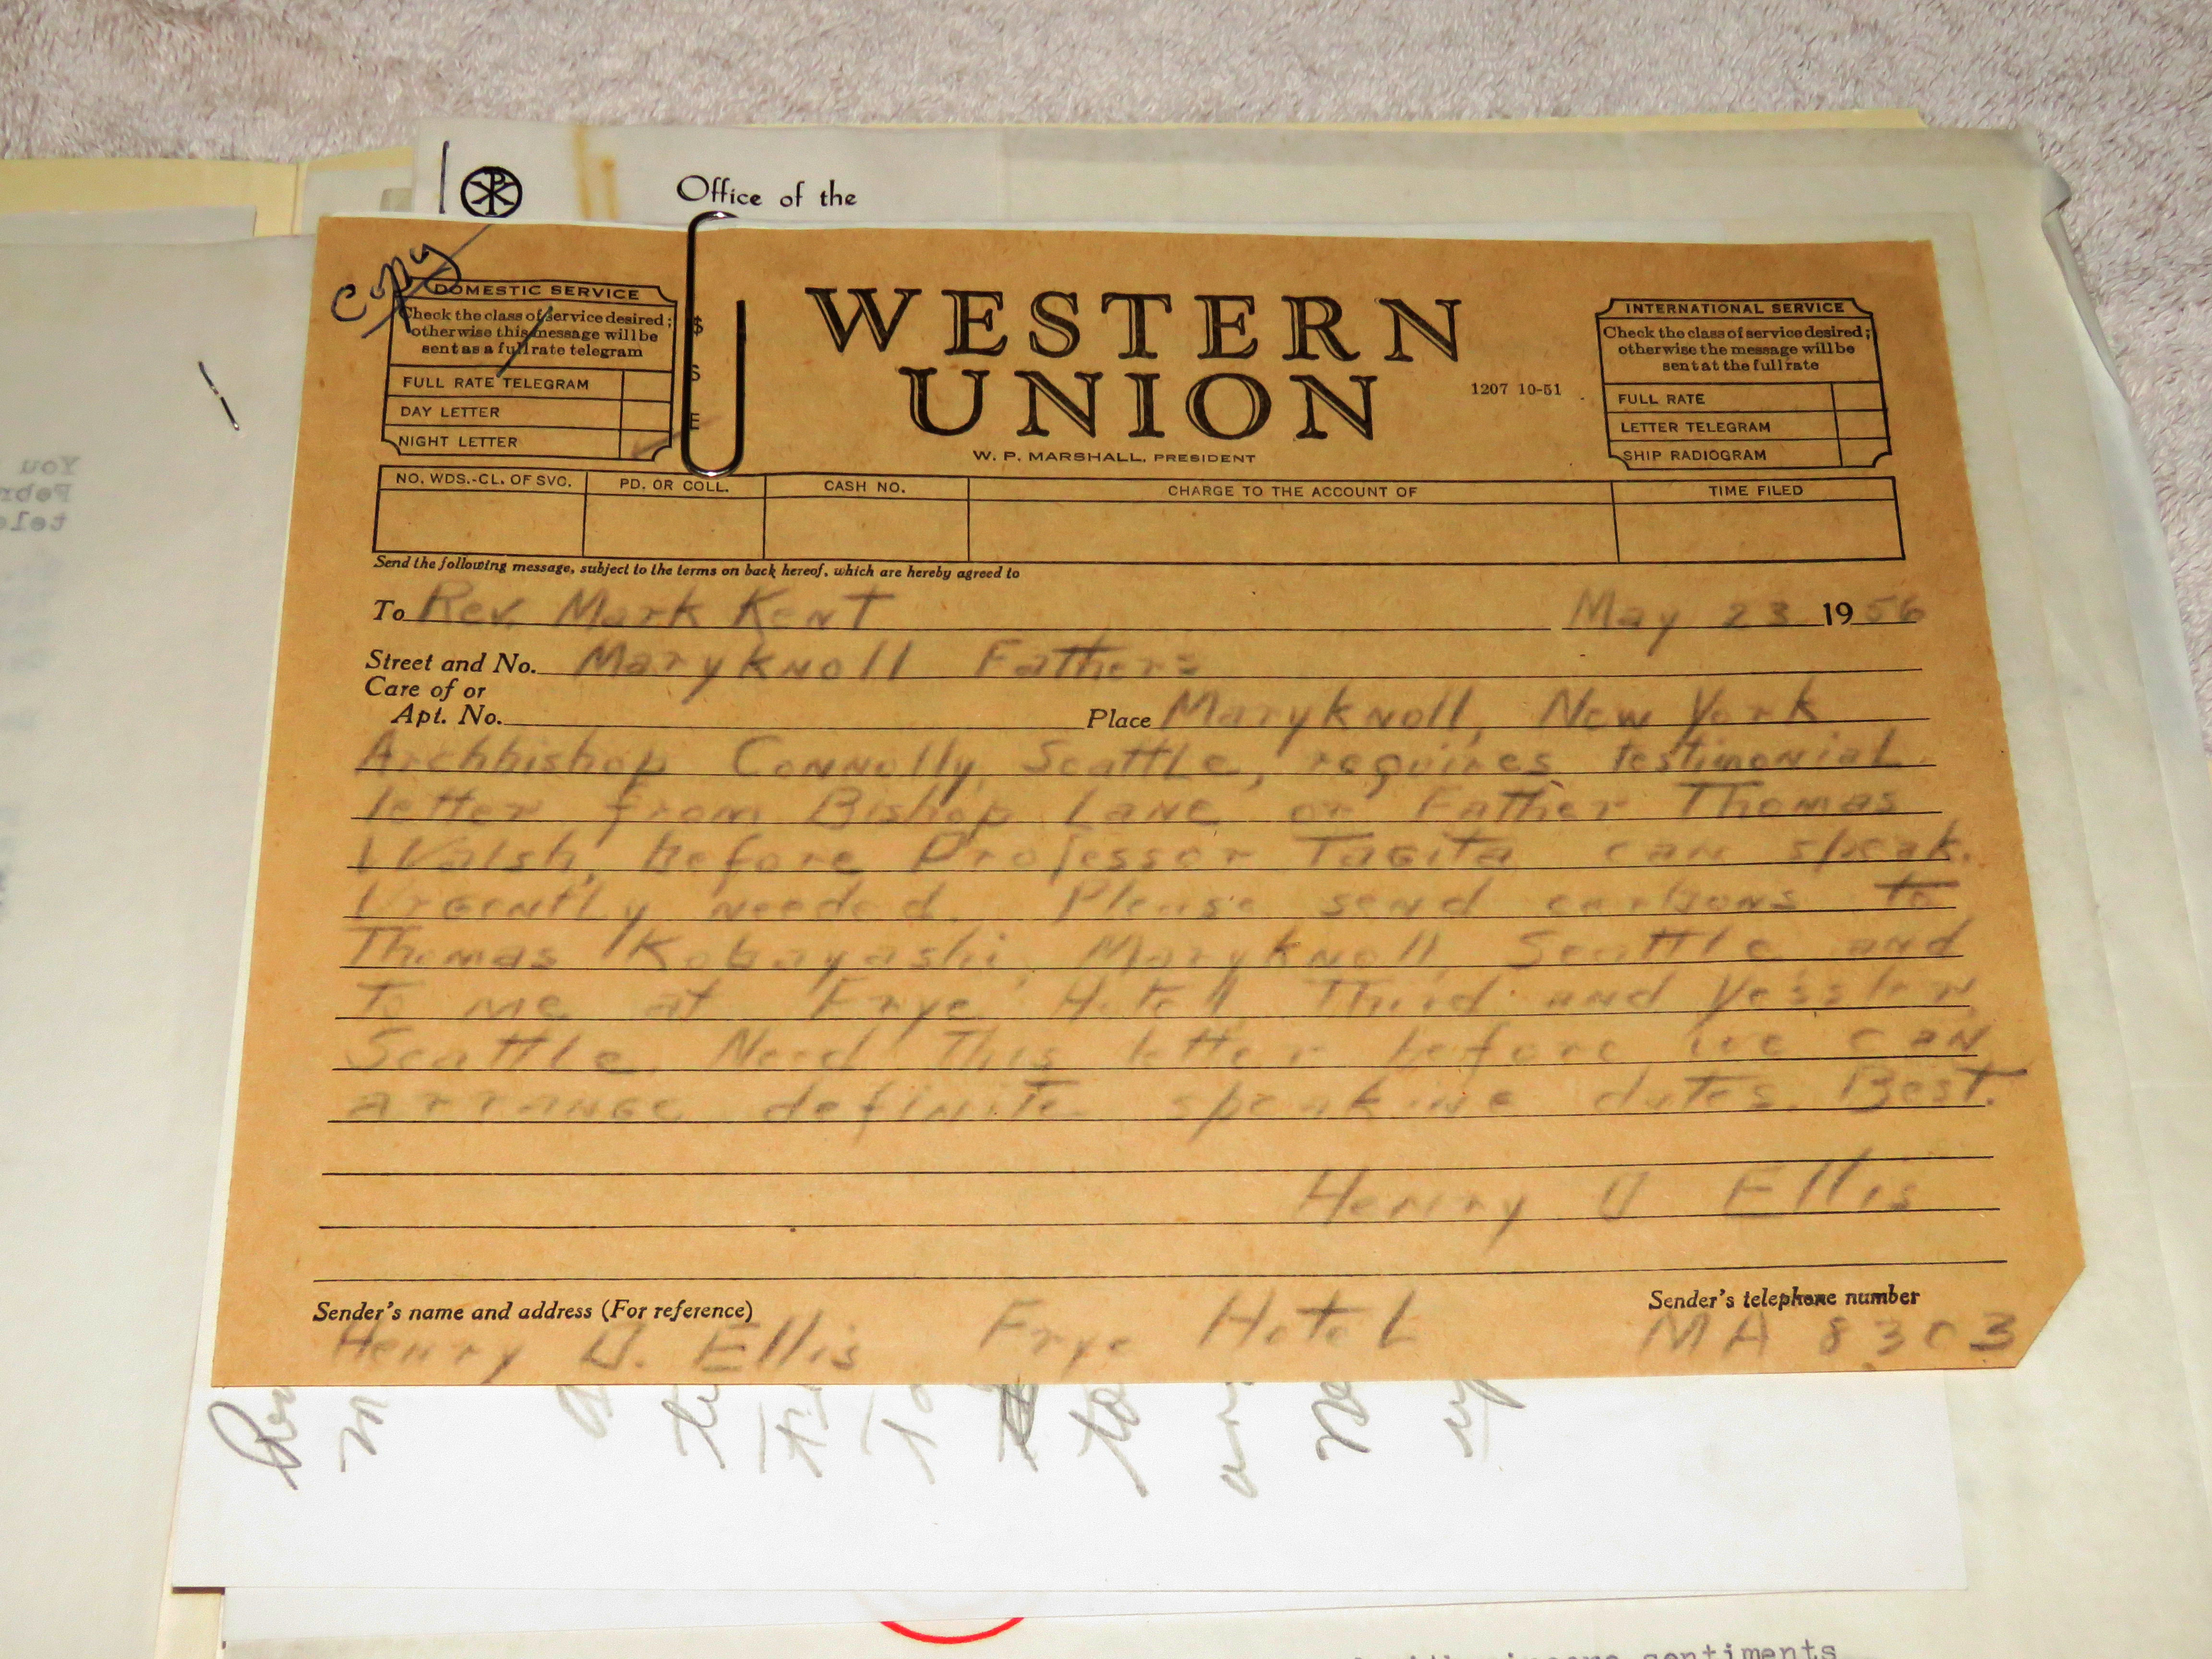 Office of the
Copy
DOMESTIC SERVICE
Check the class of service desired;
otherwise this message will be
sent as a full rate telegram
FULL RATE TELEGRAM
DAY LETTER
NIGHT LETTER
$
S
E
WESTERN
UNION
1207 10-51
W. P. MARSHALL, PRESIDENT
INTERNATIONAL SERVICE
Check the class of service desired;
otherwise the message will be
sent at the full rate
FULL RATE
LETTER TELEGRAM
SHIP RADIOGRAM
NO. WDS.-CL. OF SVC.
PD. OR COLL.
CASH NO.
CHARGE TO THE ACCOUNT OF
TIME FILED
Send the following message, subject to the terms on back hereof, which are hereby agreed to
To Rev. Mark Kent May 23 1956
Street and No. Maryknoll Fathers
Care of or
Apt. No. Place Maryknoll, New York
Archbishop Connolly, Seattle, requires testimonial
letter from Bishop Lane or Father Thomas
Walsh, before Professor Tagita can speak.
Urgently needed. Please send carbons to
Thomas Kobayashi, Maryknoll, Seattle and
to me at Frye Hotel, Third and Yessler,
Seattle. Need this letter before we can
arrange definite speaking dates. Best.
Henry D Ellis
Sender's name and address (For reference)
Sender's telephone number
Henry D. Ellis Frye Hotel MA 8303
You
Febr
tele
sentiments